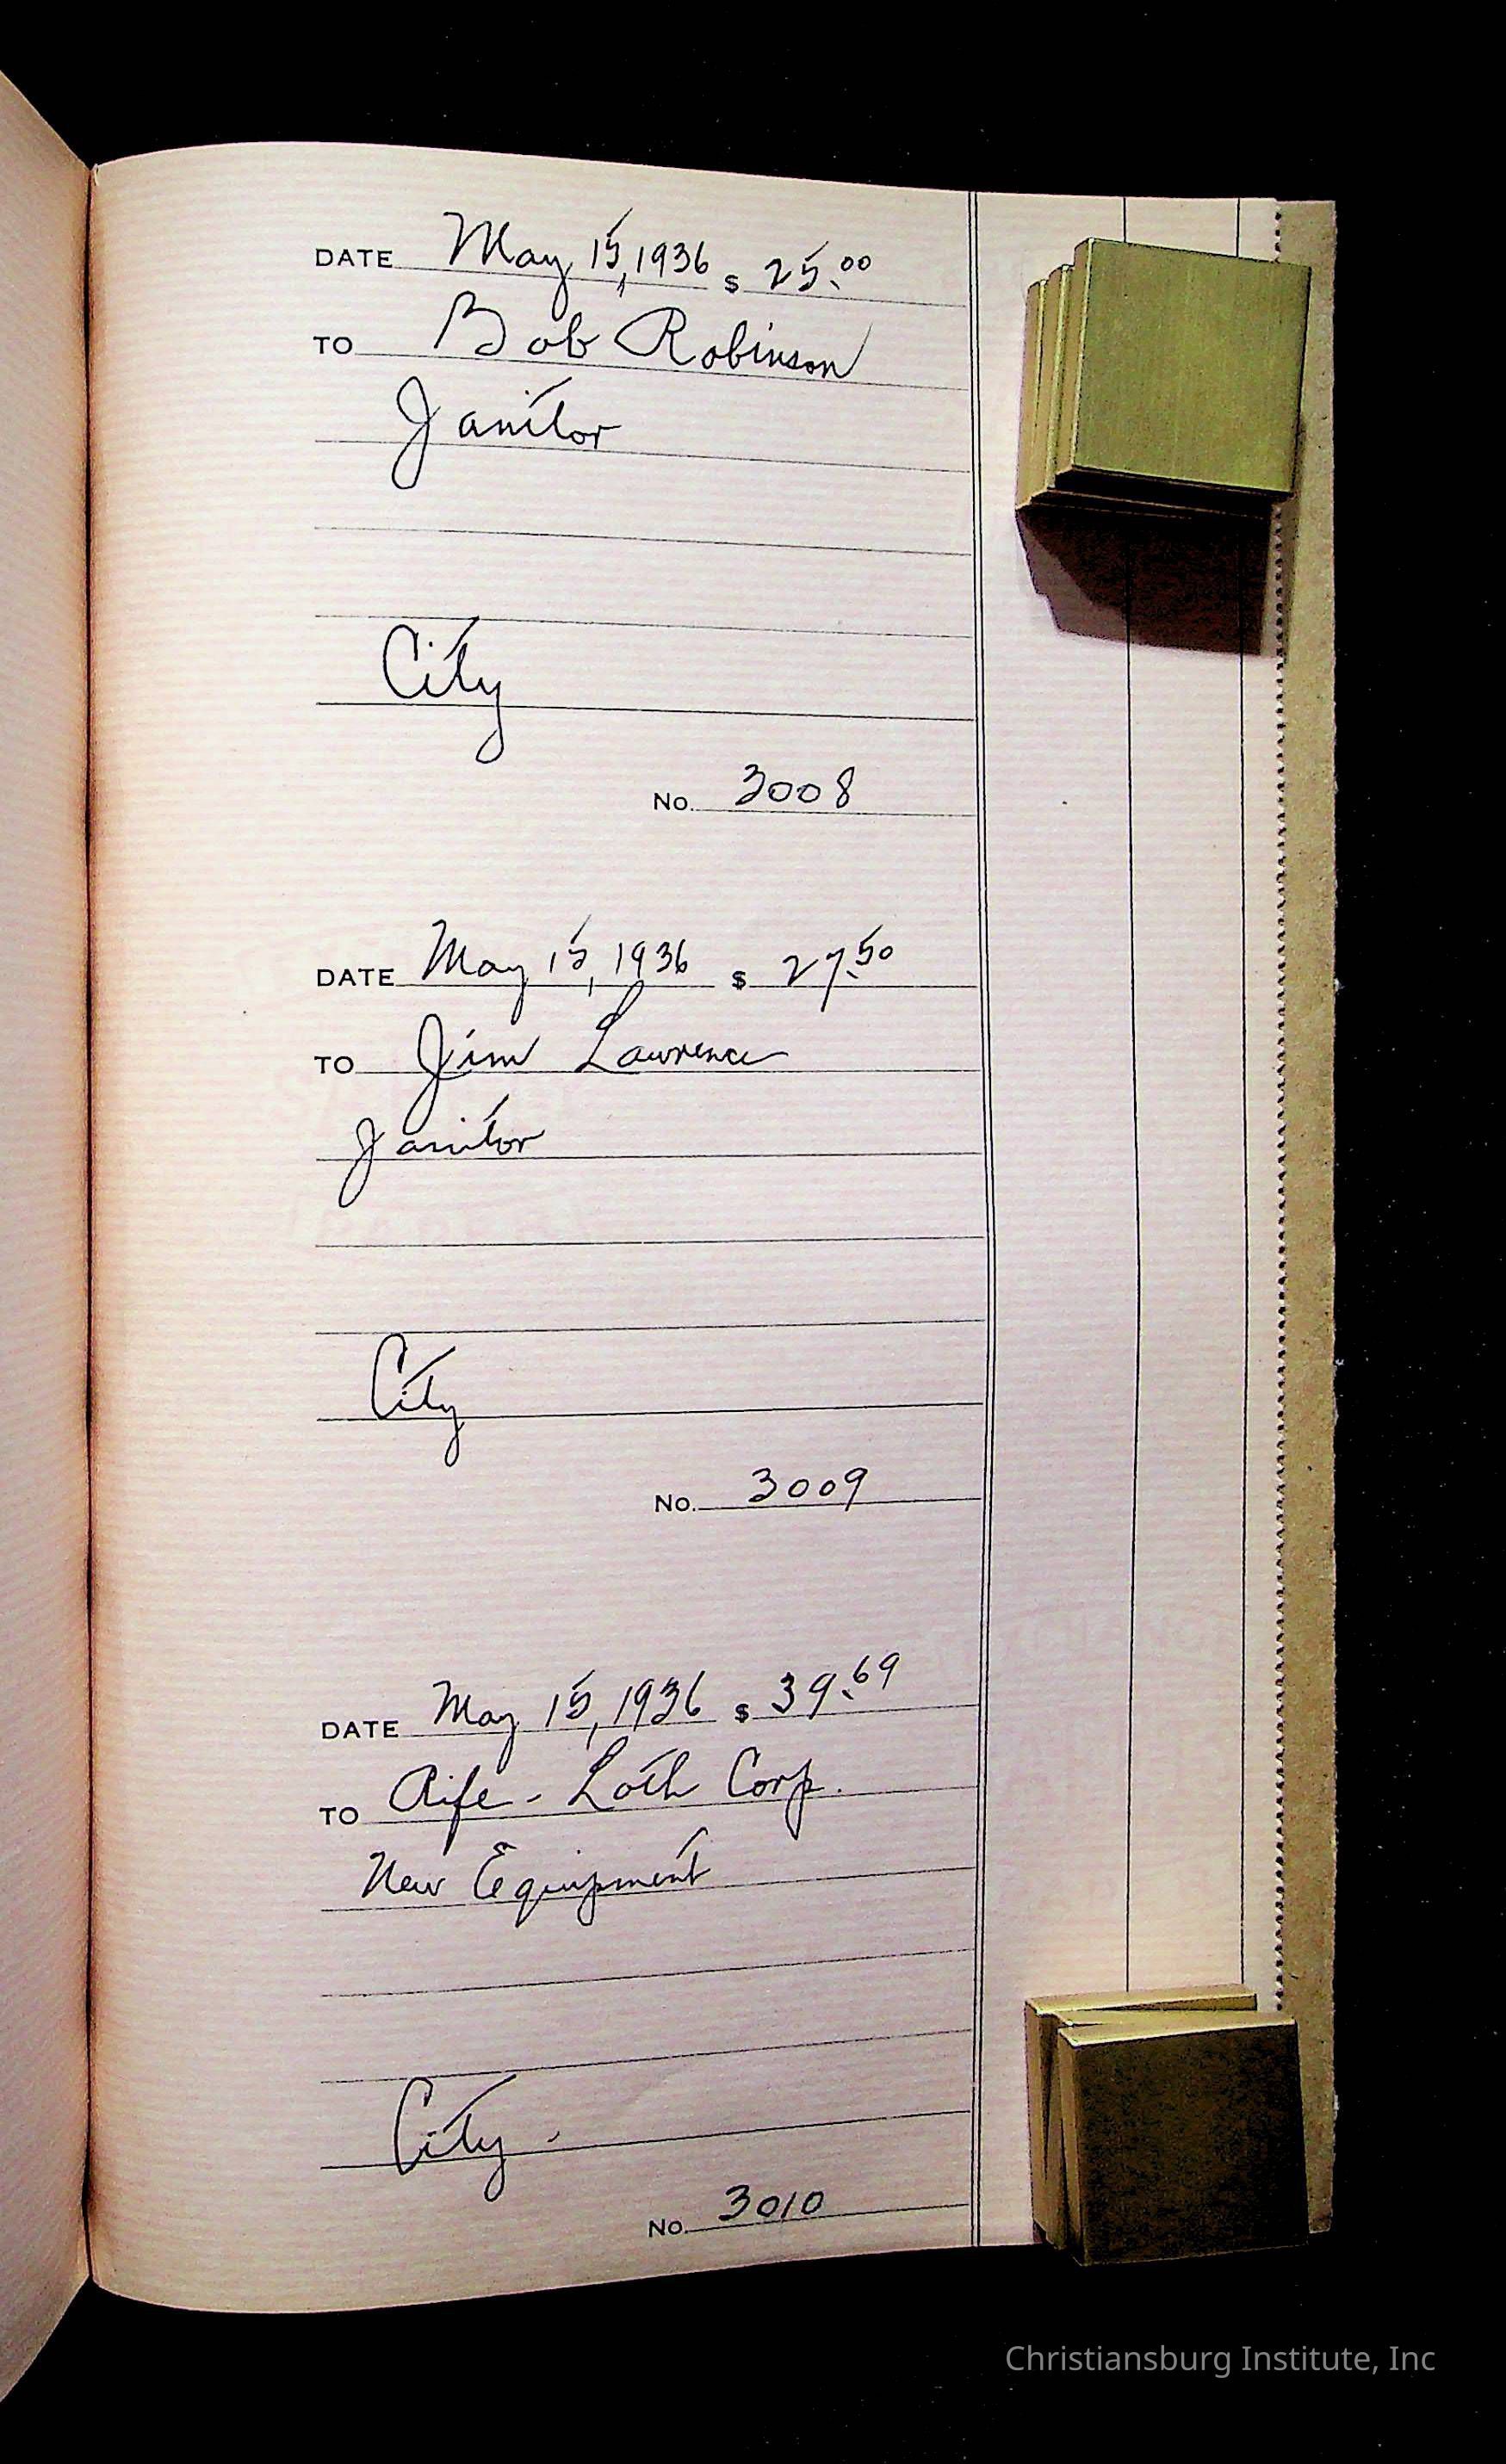 DATE May 15, 1936 $ 25.00
TO Bob Robinson
Janitor
City
No. 3008
DATE May 15, 1936 $ 27.50
TO Jim Lawrence
Janitor
City
No. 3009
DATE May 15, 1936 $ 39.69
TO Rife-Loth Corp.
New Equipment
City.
No. 3010
Christiansburg Institute, Inc